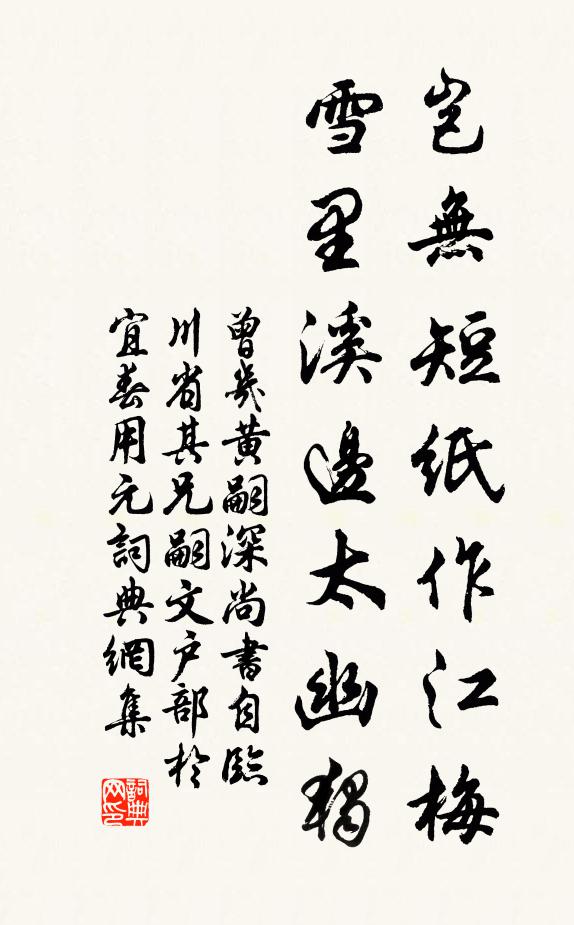 豈無短紙作江梅
雪里溪邊太幽獨
曾幾黃嗣深尚書自臨
川省其兄嗣文戶部於
宜春用元詞典網集
詞典
网印